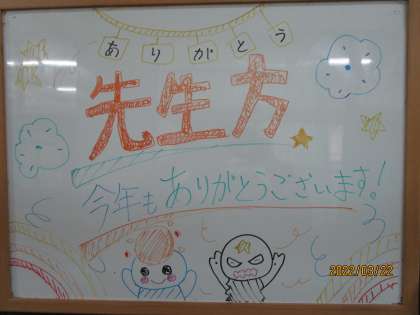 ありがとう
先生方
今年もありがとうございます!
2022/03/22